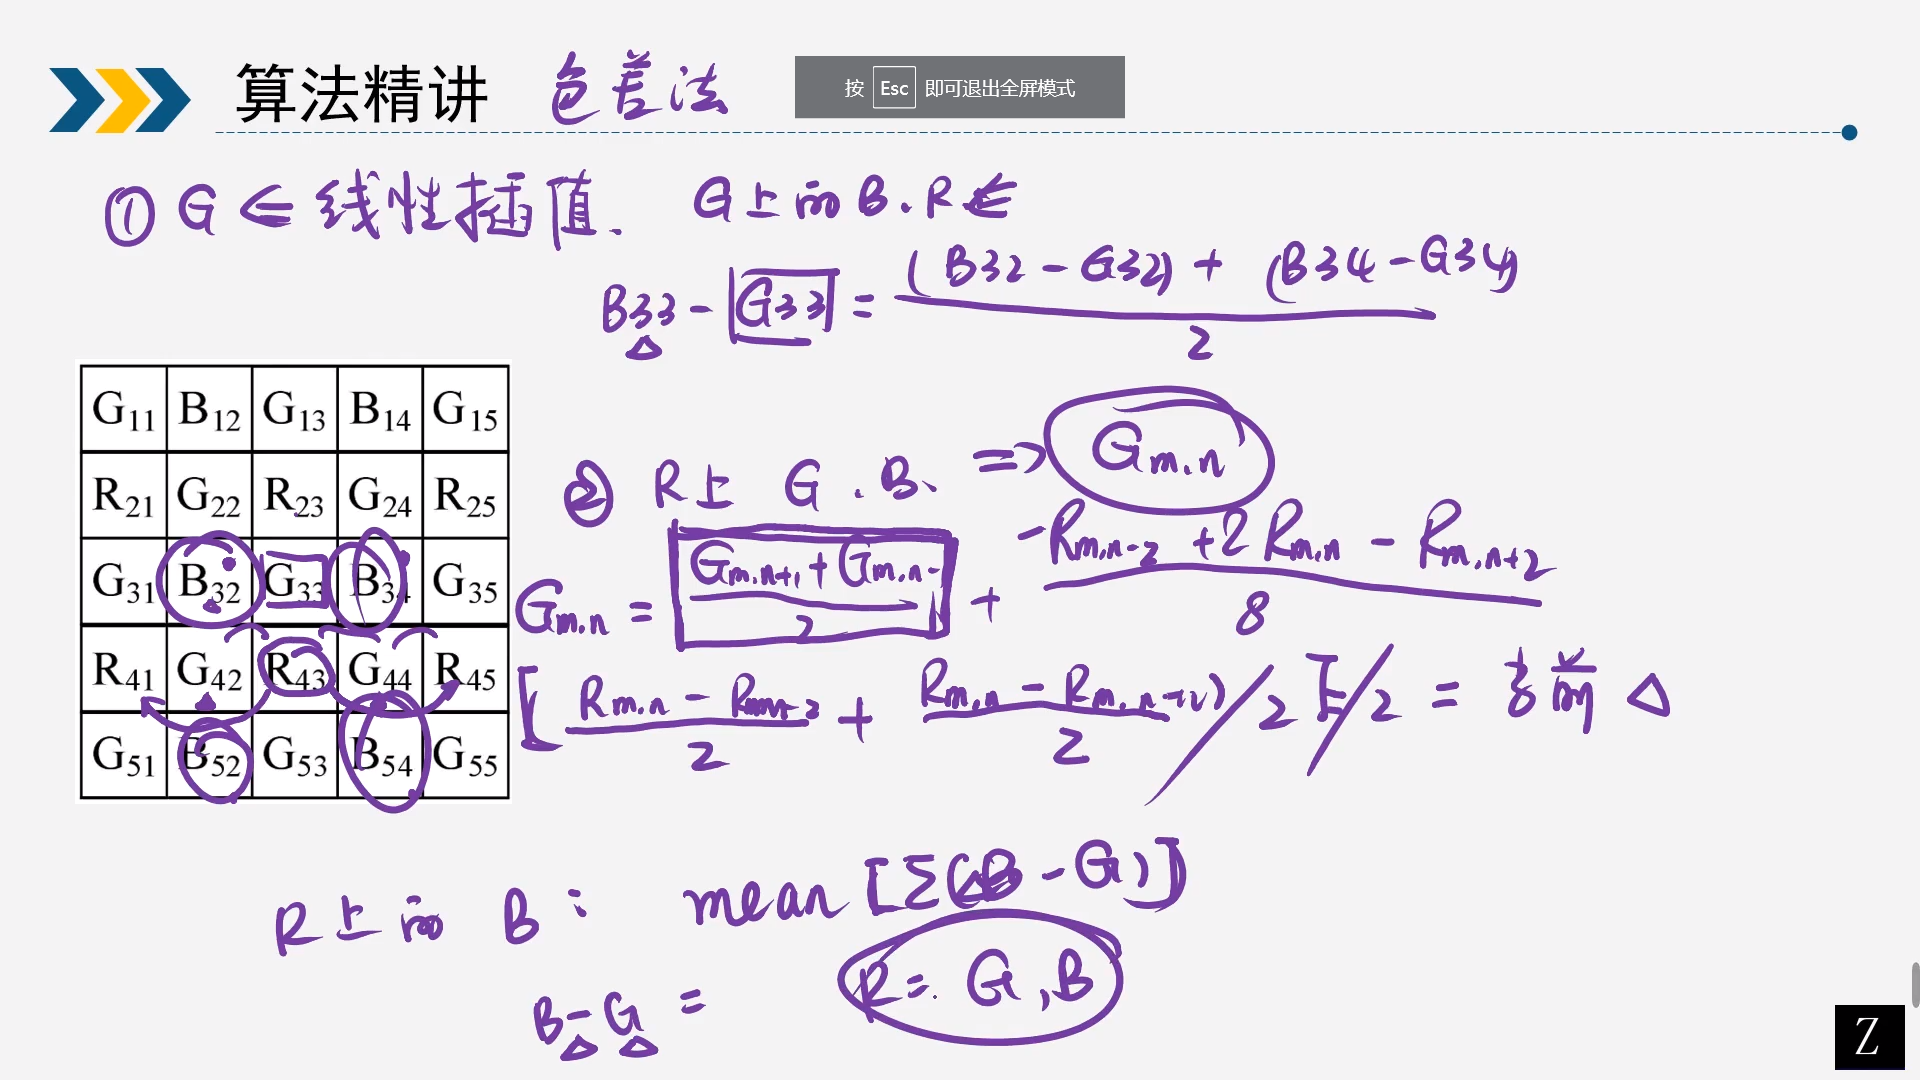 算法精讲 色差法
按 Esc 即可退出全屏模式
① G ⇐ 线性插值. G上的B.R ⇐
B33 - G33 = (B32 - G32) + (B34 - G34)
2
G11 B12 G13 B14 G15
R21 G22 R23 G24 R25
G31 B32 G33 B34 G35
R41 G42 R43 G44 R45
G51 B52 G53 B54 G55
② R上 G.B、 => Gm,n
Gm,n = Gm,n+1 + Gm,n-1 / 2 + -Rm,n-2 + 2Rm,n - Rm,n+2 / 8
[ Rm,n - Rm,n-2 / 2 + Rm,n - Rm,n+2 ) / 2 / 2 ] / 2 = Δ
R上的 B: mean [Σ(B - G)]
B - G =
R = G, B
Z